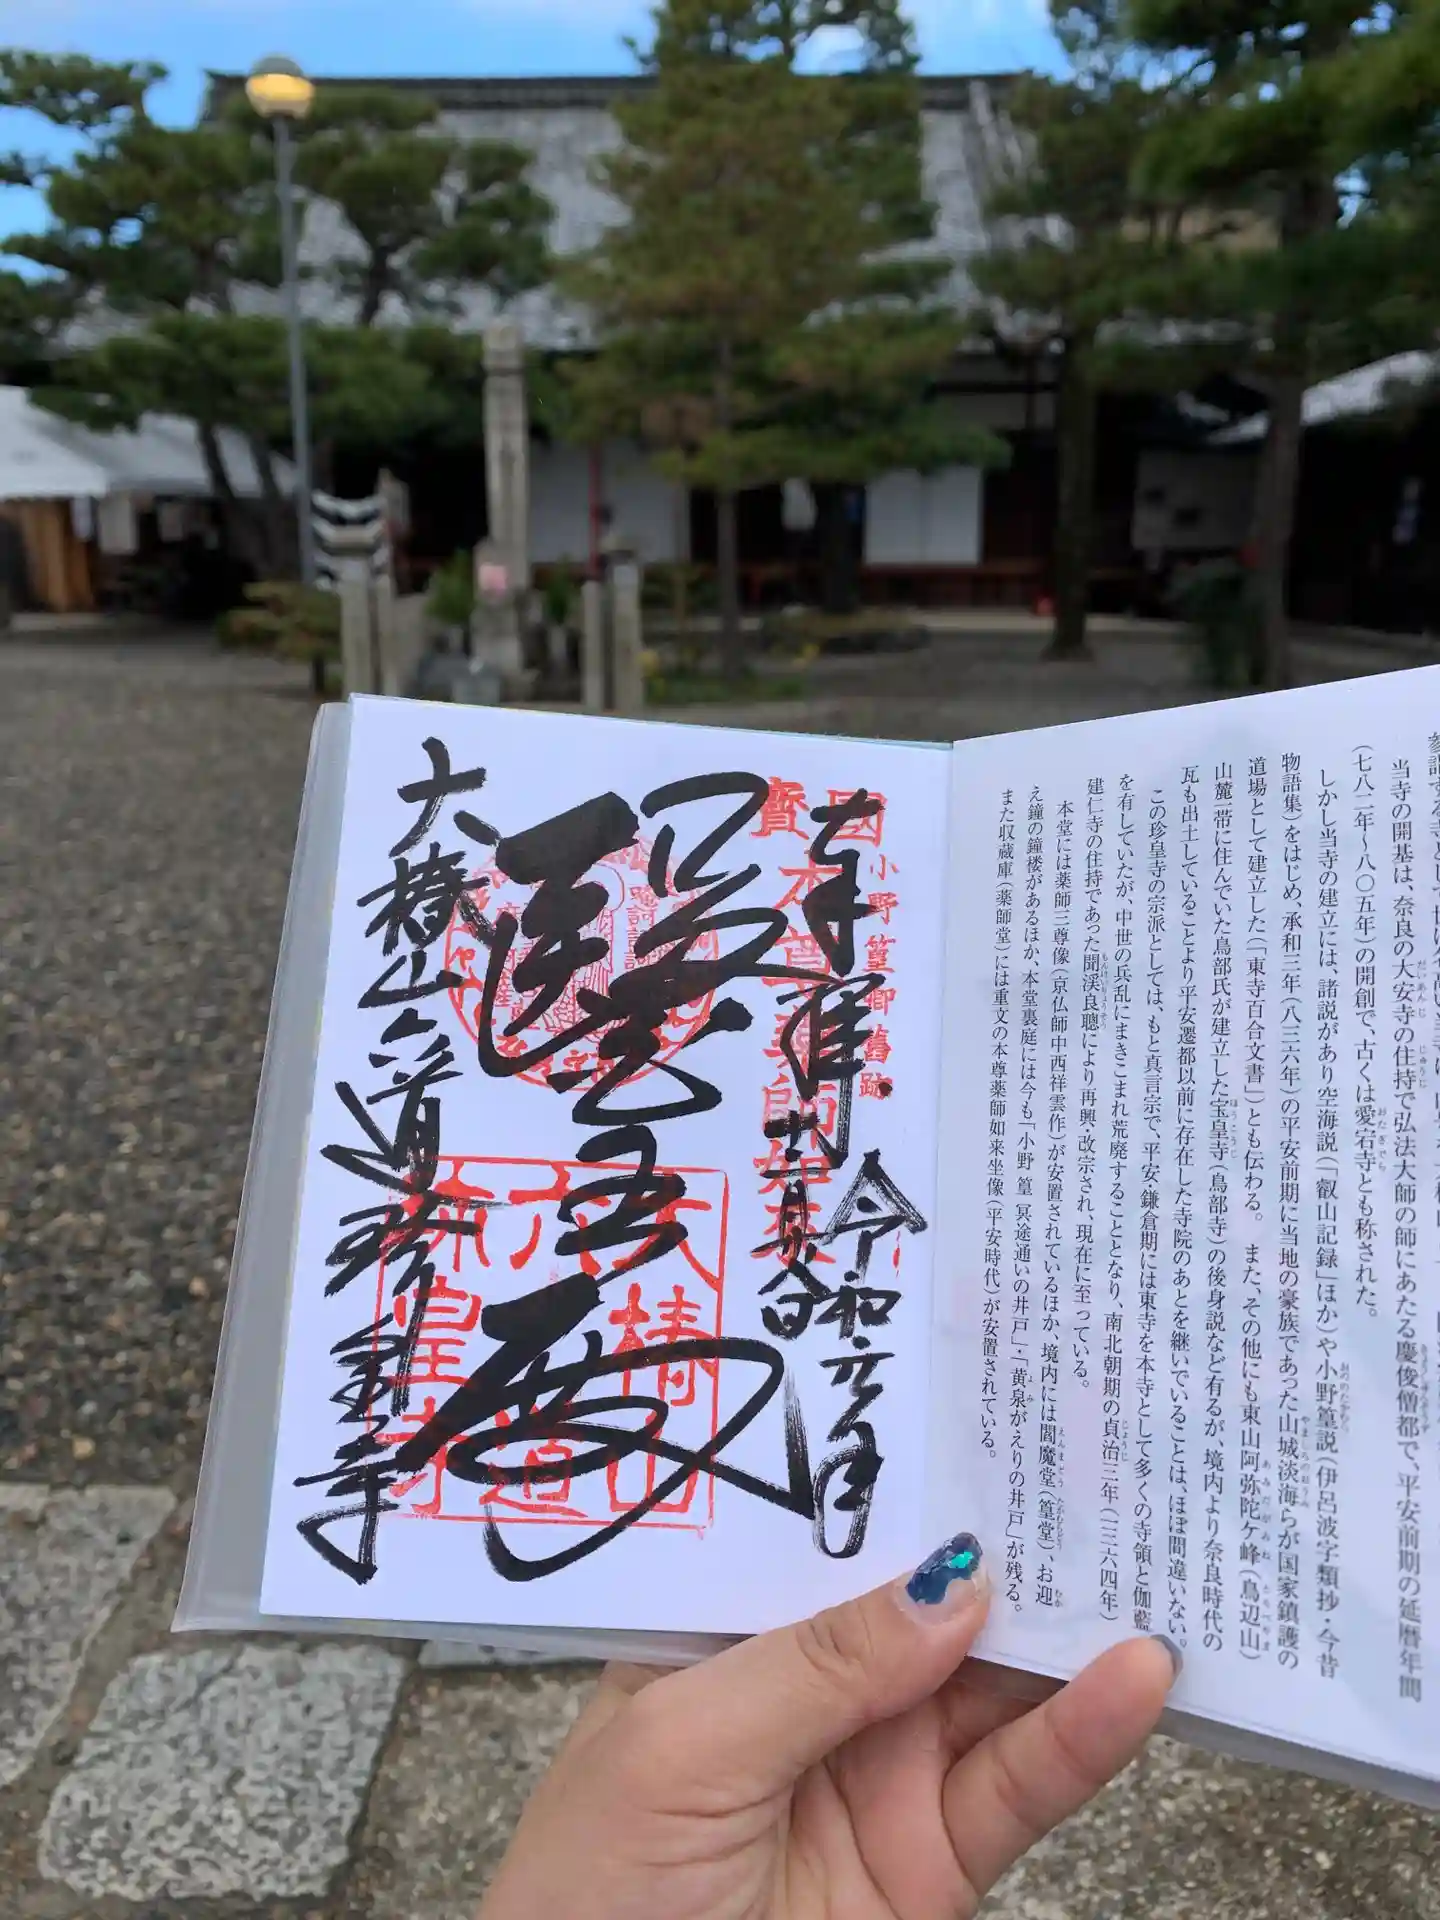 当寺の開基は、奈良の大安寺の住持で弘法大師の師にあたる慶俊僧都で、平安前期の延暦年間
(七八二年〜八〇五年)の開創で、古くは愛宕寺とも称された。
しかし当寺の建立には、諸説があり空海説(「叡山記録」ほか)や小野篁説(伊呂波字類抄・今昔
物語集)をはじめ、承和三年(八三六年)の平安前期に当地の豪族であった山城淡海らが国家鎮護の
道場として建立した(「東寺百合文書」)とも伝わる。また、その他にも東山阿弥陀ケ峰(鳥辺山)
山麓一帯に住んでいた鳥部氏が建立した宝皇寺(鳥部寺)の後身説など有るが、境内より奈良時代の
瓦も出土していることより平安遷都以前に存在した寺院のあとを継いでいることは、ほぼ間違いない。
この珍皇寺の宗派としては、もと真言宗で、平安・鎌倉期には東寺を本寺として多くの寺領と伽藍
を有していたが、中世の兵乱にまきこまれ荒廃することとなり、南北朝期の貞治三年(一三六四年)
建仁寺の住持であった聞渓良聰により再興・改宗され、現在に至っている。
本堂には薬師三尊像(京仏師中西祥雲作)が安置されているほか、境内には閻魔堂(篁堂)、お迎
え鐘の鐘楼があるほか、本堂裏庭には今も「小野篁 冥途通いの井戸」・「黄泉がえりの井戸」が残る。
また収蔵庫(薬師堂)には重文の本尊薬師如来坐像(平安時代)が安置されている。
國寶
小野篁卿舊跡
本尊薬師如来
奉拝
令和元年
醫王殿
大椿山
六道珍皇寺
大椿山
六道
珍皇寺